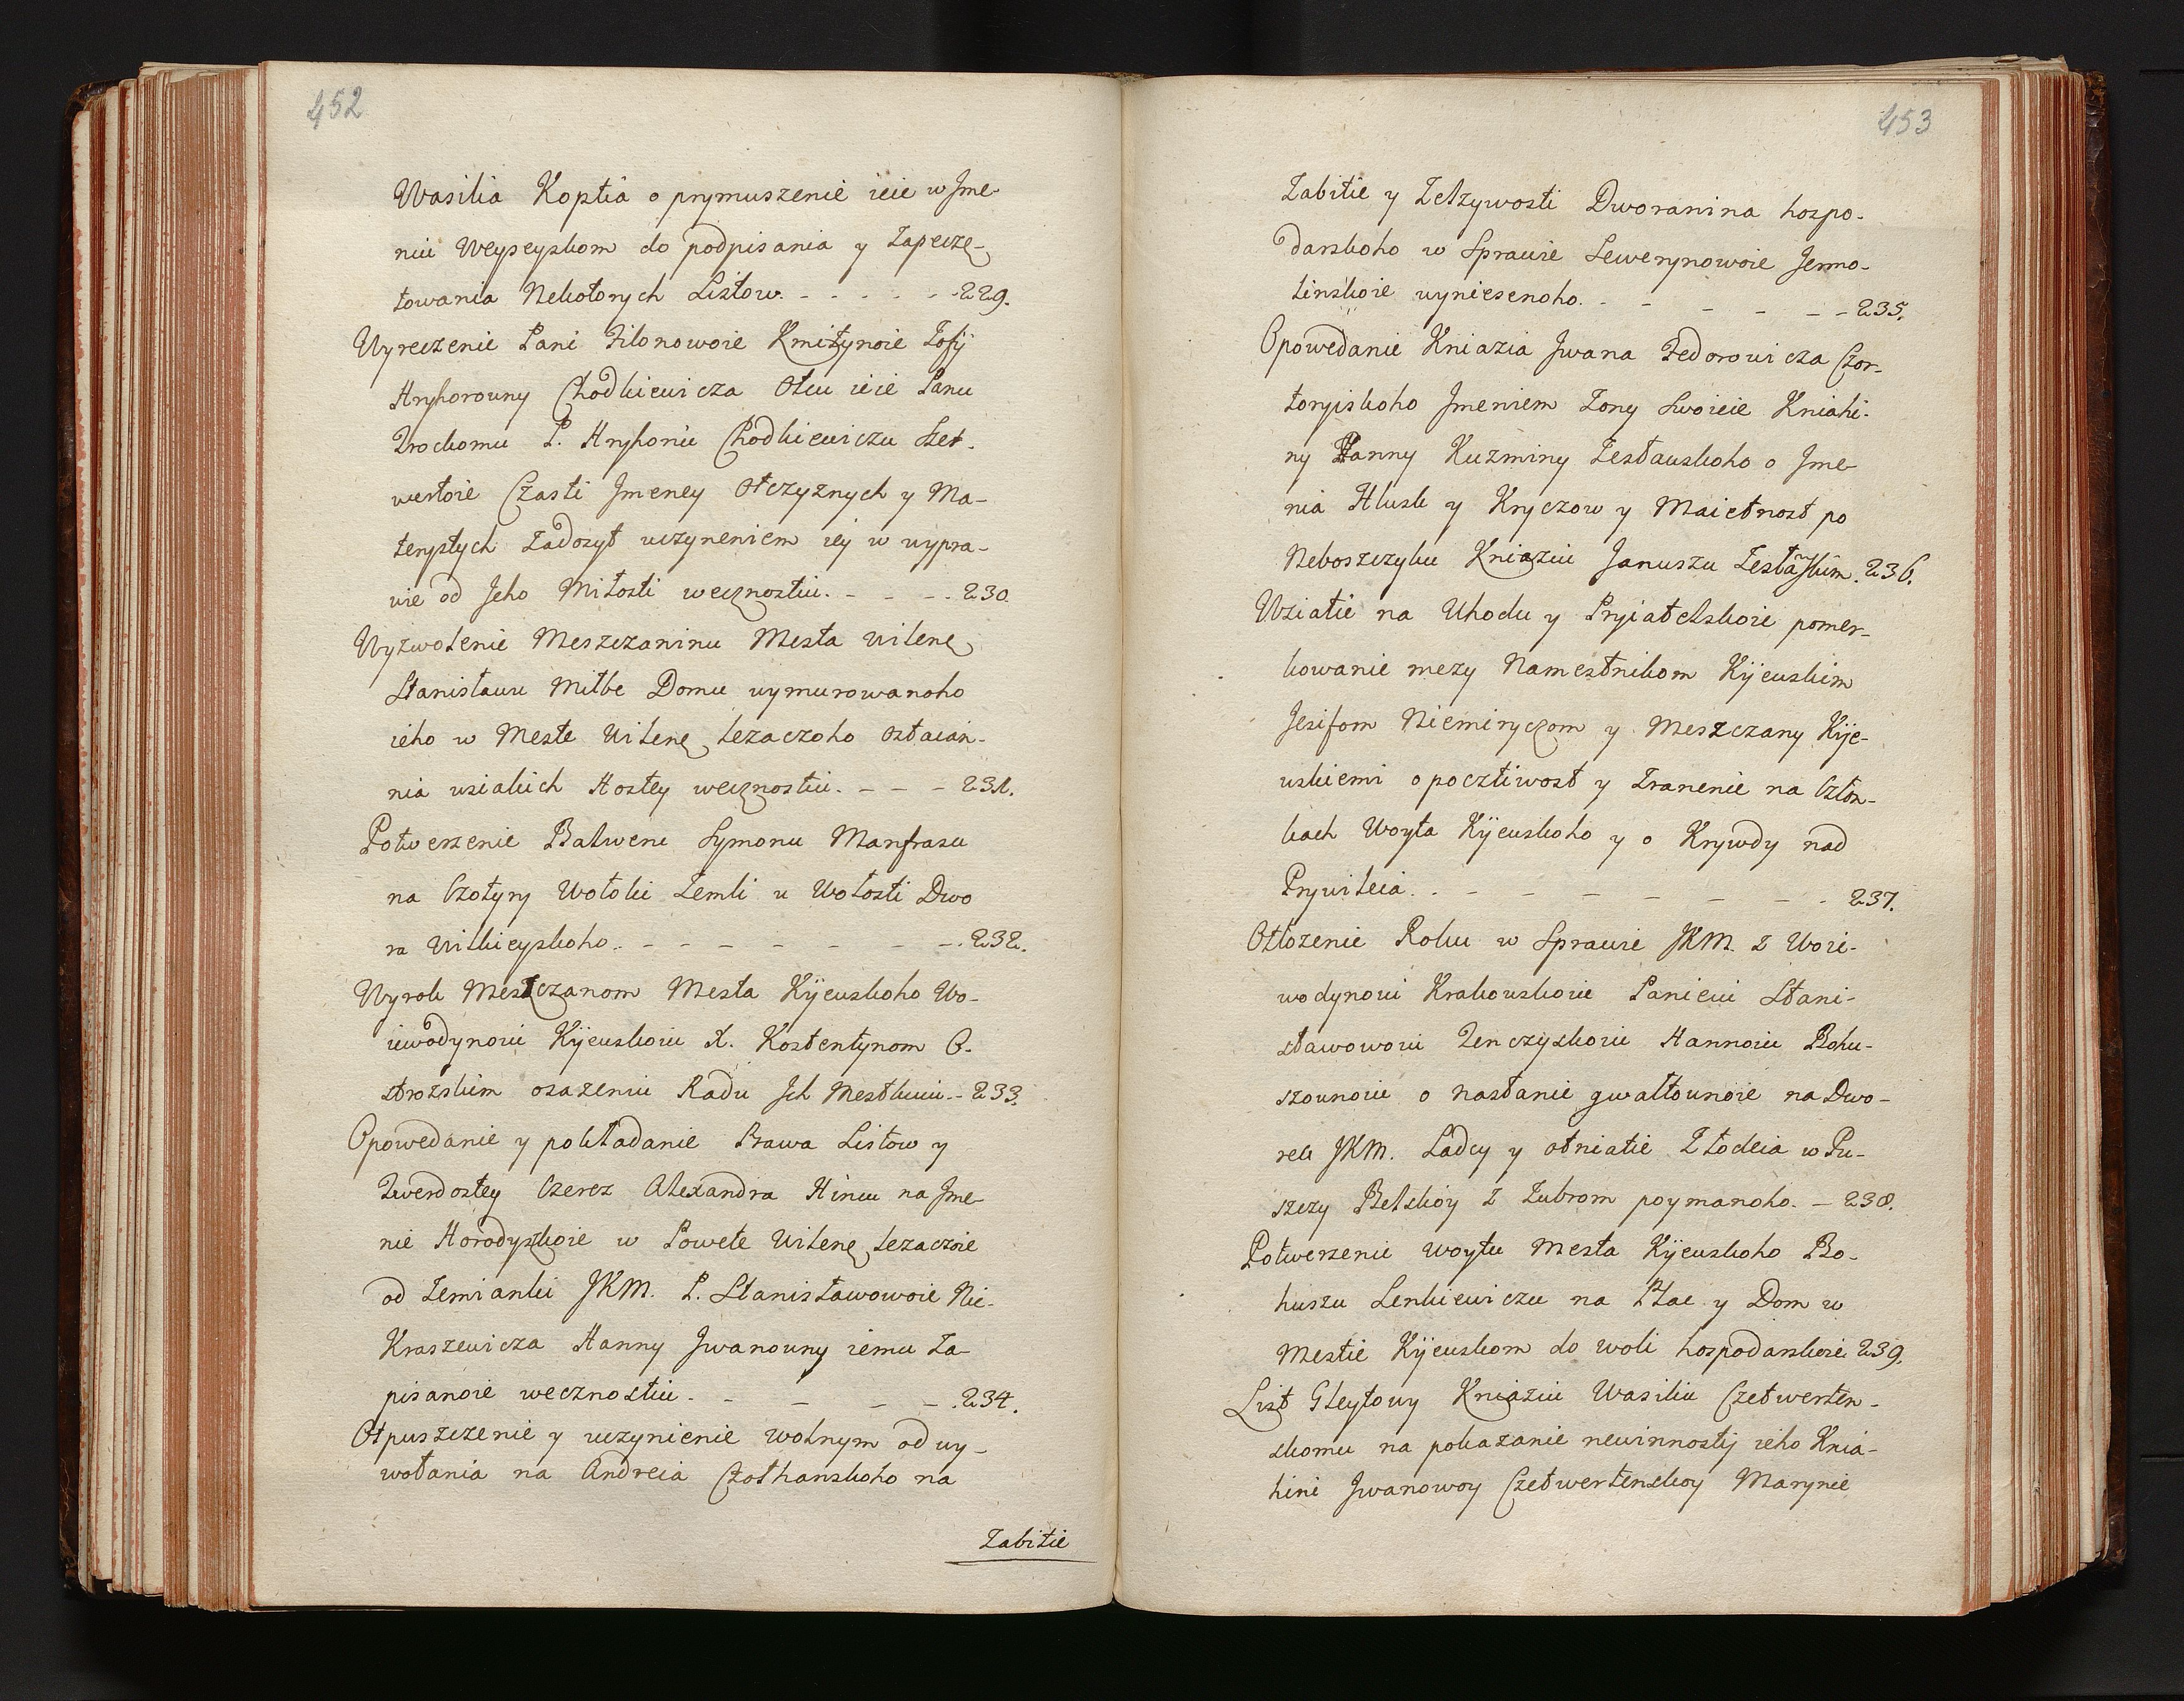 452
Wasilia Koptia o prymuszenie ieie w Jme-
niu Weyseyskom do podpisania y Zapecze-
towania Nekotorych Listow. - - - - - - 229.
Wyreczenie Pani Filonowoie Kmitynoie Zofij
Hryhorowny Chodkiewicza Otcu ieie Panu
Trockomu P. Hryhoriu Chodkiewiczu Czet-
wertoie Czasti Jmeney Otczyznych y Ma-
terystych Zadosyt uczyneniem iey w wypra-
wie od Jeho Miłosti wecznostiu. - - - - 230.
Wyzwolenie Meszczaninu Mesta Wilene
Stanisławu Milbe Domu wymurowanoho
ieho w Meste Wilene lezaczoho ostaian-
nia wsiakich Hostey wecznostiu. - - - 231.
Potwerzenie Balweru Symonu Manfrasu
na Czotyry Wołoki Zemli u Wołosti Dwo
ra Wilkieyskoho. - - - - - - - - 232.
Wyrok Mesczanom Mesta Kijewskoho Wo-
iewodynoiu Kijewskoiu X. Kostentynom O-
strozskim osazeniu Radu Jch Mestkuiu. - 233.
Opowedanie y pokładanie Prawa Listow y
Twerdostey Czerez Alexandra Hincu na Jme-
nie Horodyskoie w Powete Wilene lezaczoie
od Zemianki JKM. P. Stanisławowoie Nie-
Kraszewicza Hanny Jwanowny iemu Za-
pisanoie wecznostiu. - - - - - 234.
Otpuszczenie y uczynienie wolnym od wy-
wołania na Andreia Czołhanskoho na
Zabitie
453
Zabitie y Zelzywosti Dworanina hospo-
darskoho w Sprawie Sewerynowoie Jermo-
linskoie wyniesenoho. - - - - - - 235.
Opowedanie Kniazia Jwana Fedorowicza Czor-
toryiskoho Jmeniem Zony Swoieie Kniahi-
ny Hanny Kuzminy Zesławskoho o Jme-
nia Hlusk y Kryczow y Maietnost po
Neboszczyku Kniaziu Januszu Zesławskim. 236.
Wziatie na Uhodu y Pryiatelskoie pomer-
kowanie mezy Namestnikom Kijewskim
Jesifom Niemiryczom y Meszczany Kije-
wskiemi o pocztiwost y Zranenie na Człon-
kach Woyta Kijewskoho y o Krywdy nad
Prywileia. - - - - - - - - 237.
Otłozenie Roku w Sprawie JKM. z Woie-
wodynoiu Krakowskoiu Panieiu Stani-
sławowoiu Tenczyskoiu Hannoiu Bohu-
szownoiu o nasłanie gwałtownoie na Dwo-
rek JKM. Ladcy y otniatie Złodeia w Pu-
szczy Belskoy z Zubrom poymanoho. - 238.
Potwerzenie woytu Mesta Kijewskoho Bo-
huszu Lenkiewiczu na Plac y Dom w
Mestie Kijewskom do woli hospodarskoie 239.
List Gleytowy Kniaziu Wasiliu Czetwerten-
skomu na pokazanie newinnostij ieho Knia-
hini Jwanowoy Czetwertenskoy Marynie